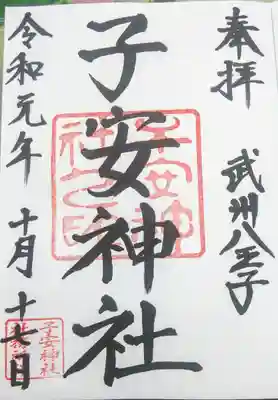 奉拝
武州八王子
子安神社
令和元年 十月 十七日
子安神
社之印
子安神社